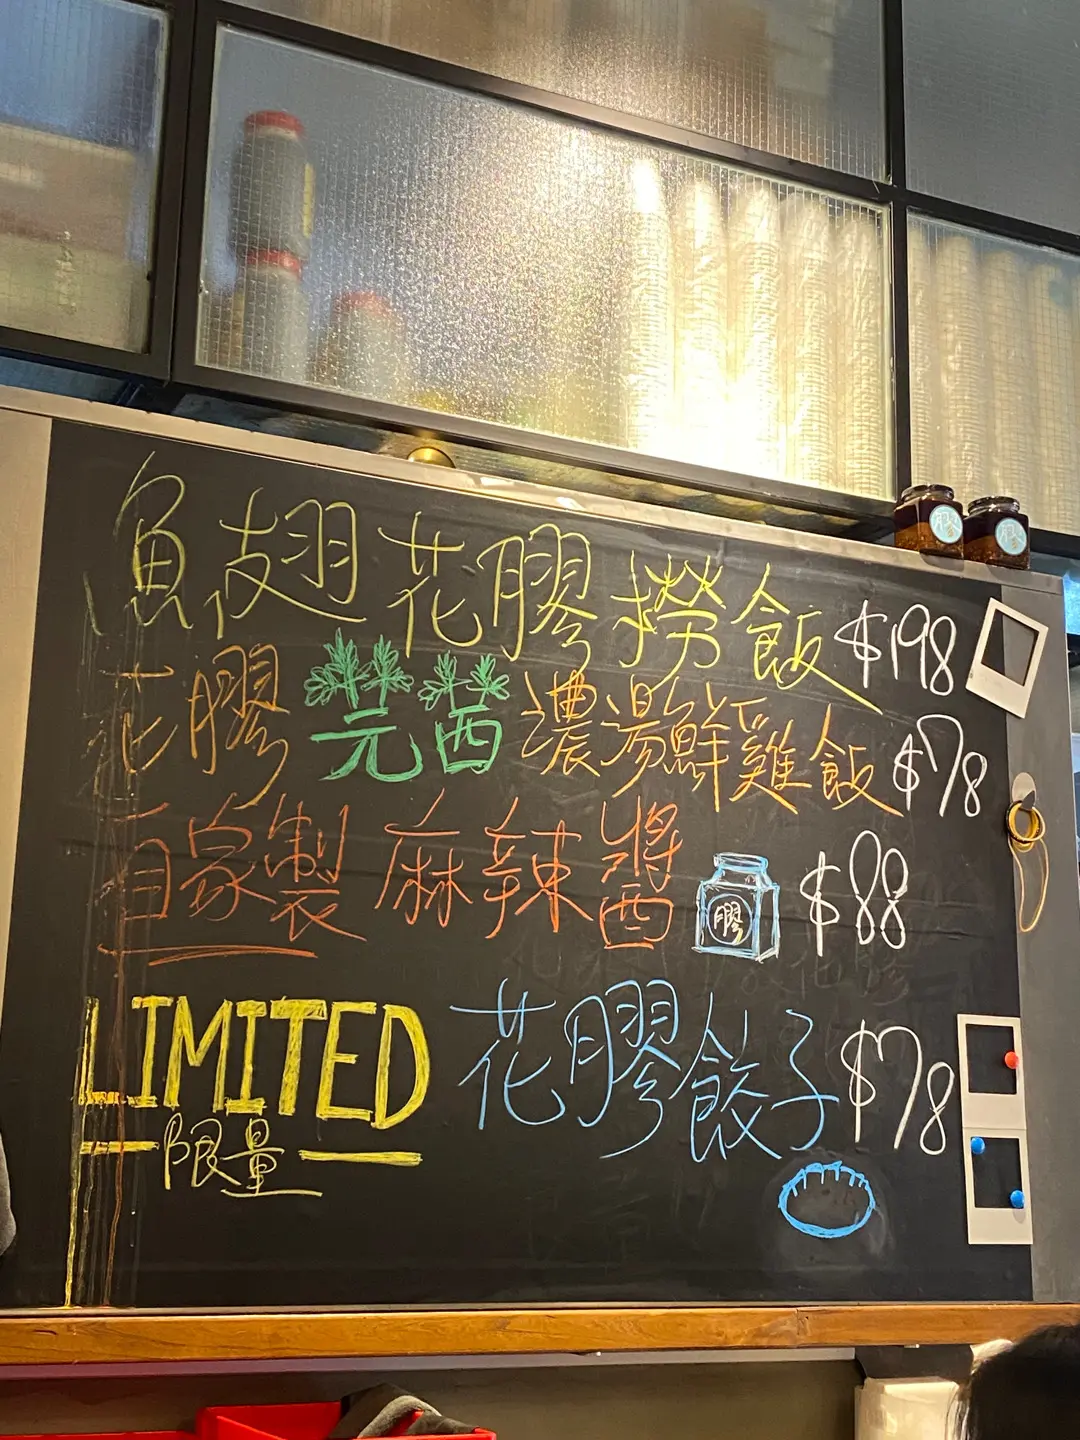 魚翅花膠撈飯 $198
花膠芫茜濃湯鮮雞飯 $78
自家製麻辣醬 膠 $88
LIMITED 花膠餃子 $78
限量
膠
膠